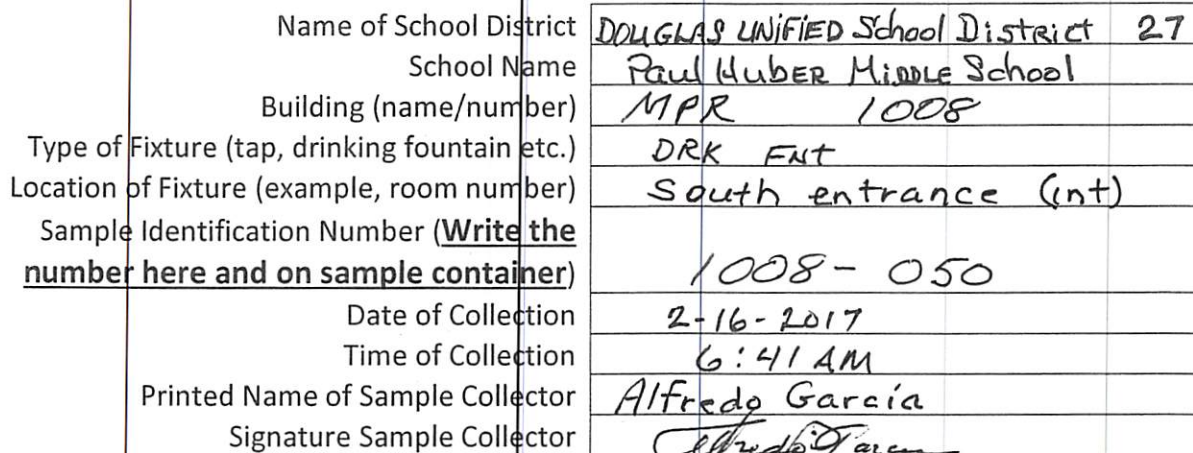 Name of School District DOUGLAS UNiFiED School District 27
School Name Paul Huber Middle School
Building (name/number) MPR 1008
Type of Fixture (tap, drinking fountain etc.) DRK FNt
Location of Fixture (example, room number) South entrance (int)
Sample Identification Number (Write the
number here and on sample container) 1008 - 050
Date of Collection 2-16-2017
Time of Collection 6:41 AM
Printed Name of Sample Collector Alfredo Garcia
Signature Sample Collector Alfredo Garcia